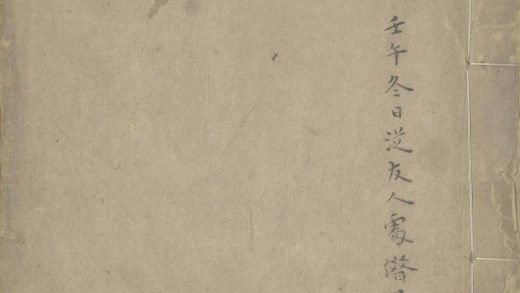 壬午冬日從友人處潛